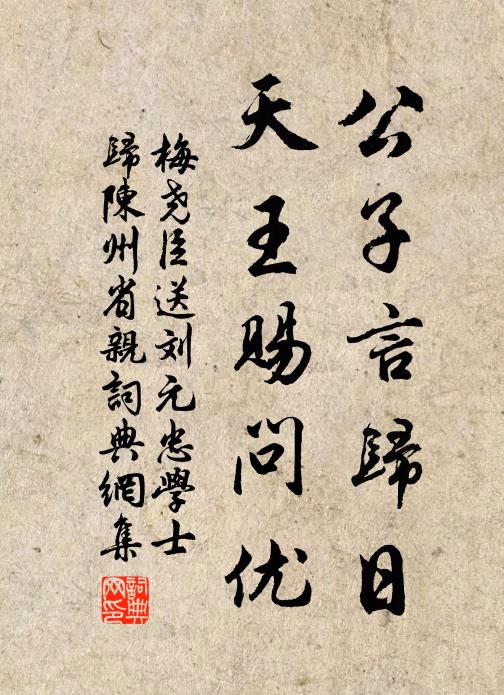 公子言歸日
天王賜問优
梅尧臣送刘元忠學士
歸陳州省親詞典網集
詞典
网印